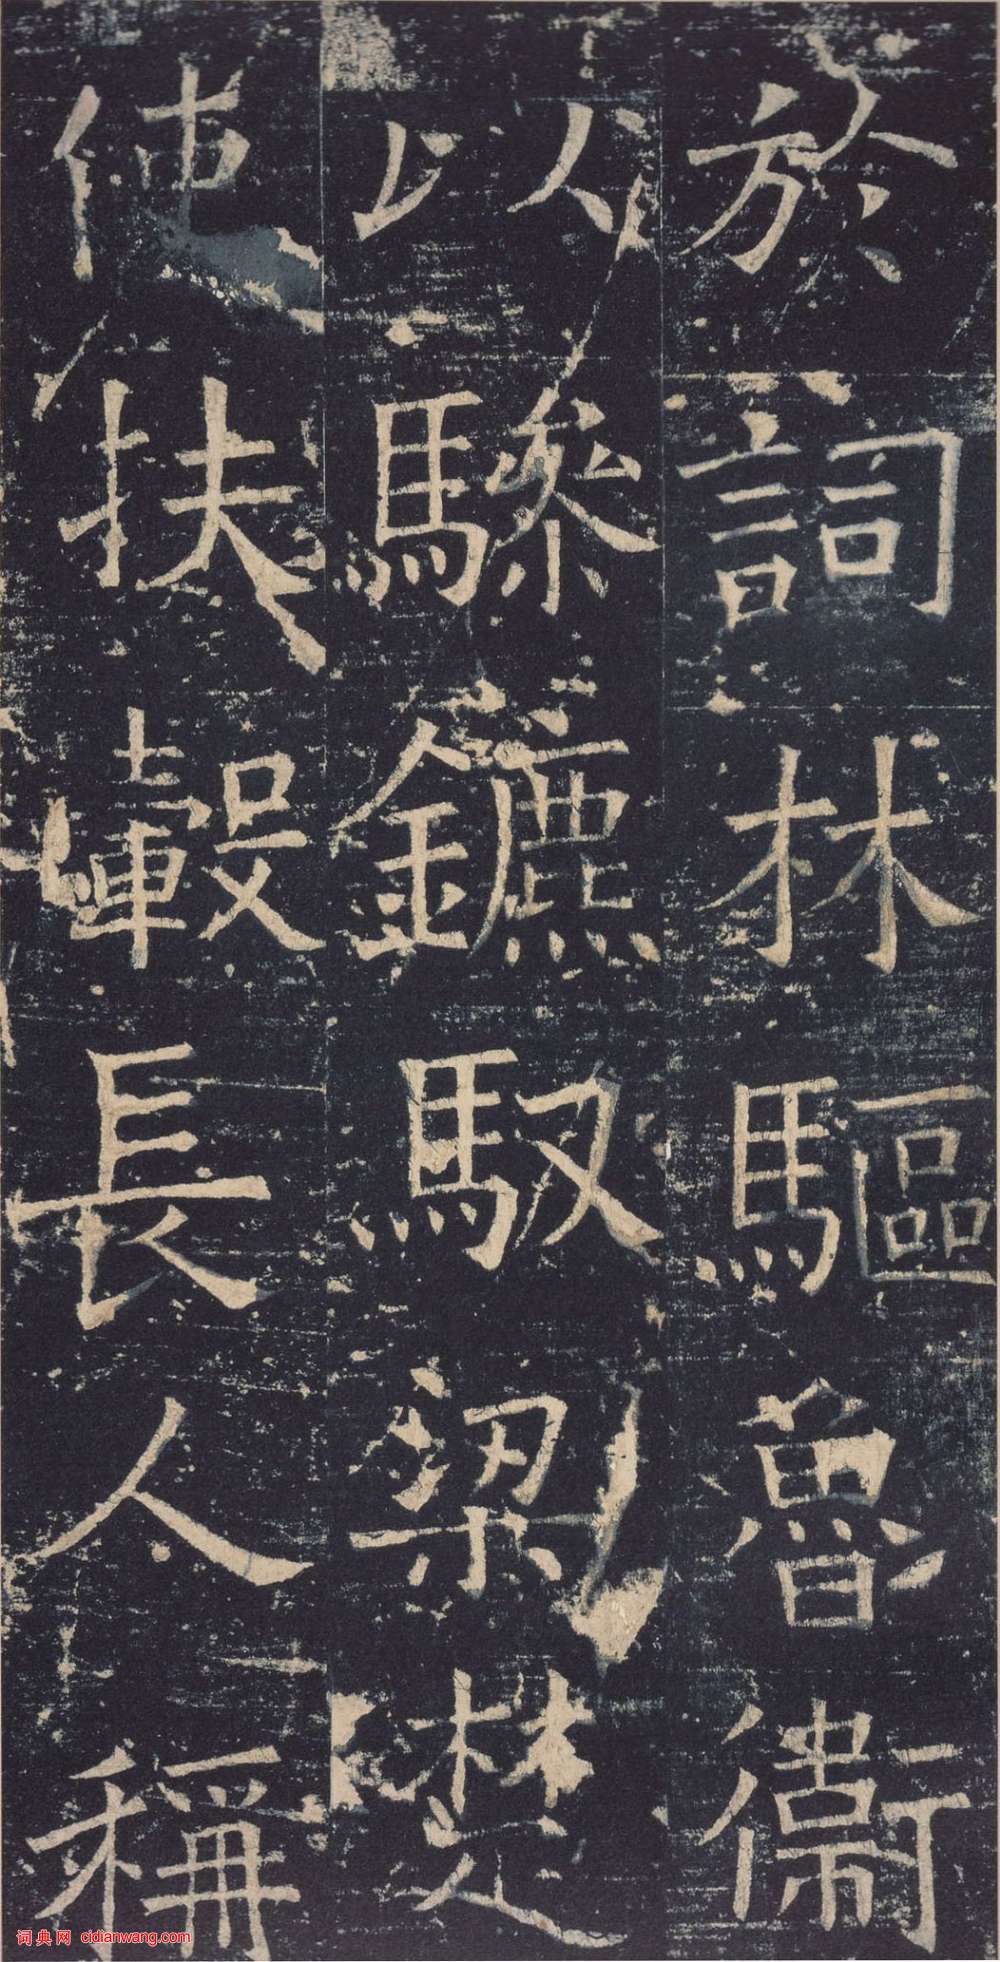 於詞林驅魯衛
以驂鑣馭梁楚
使扶轂長人稱
词典网 cidianwang.com